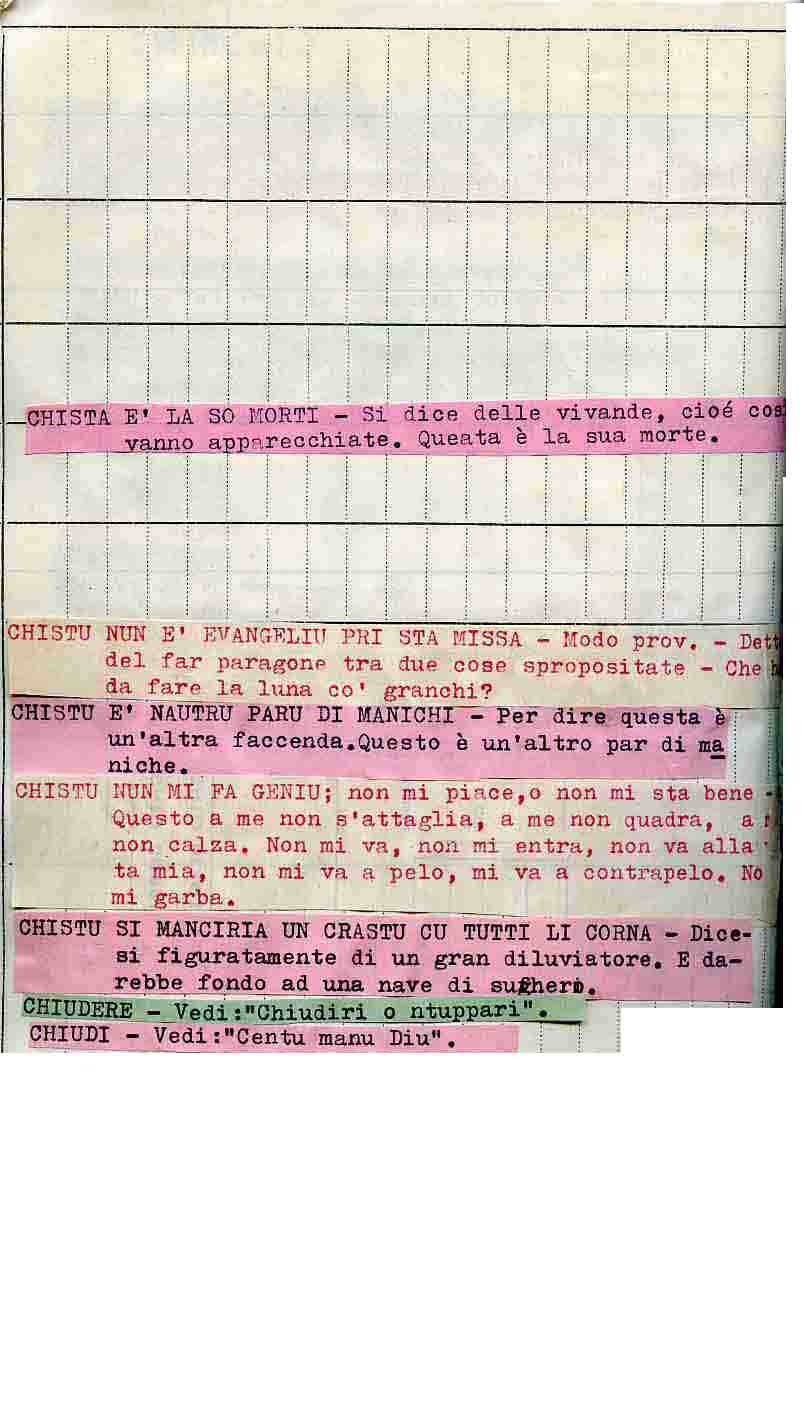 CHISTA E' LA SO MORTI - Si dice delle vivande, cioé cos
vanno apparecchiate. Queata è la sua morte.
CHISTU NUN E' EVANGELIU PRI STA MISSA - Modo prov. - Dett
del far paragone tra due cose spropositate - Che h
da fare la luna co' granchi?
CHISTU E' NAUTRU PARU DI MANICHI - Per dire questa è
un'altra faccenda.Questo è un'altro par di ma
niche.
CHISTU NUN MI FA GENIU; non mi piace,o non mi sta bene -
Questo a me non s'attaglia, a me non quadra, a
non calza. Non mi va, non mi entra, non va alla
ta mia, non mi va a pelo, mi va a contrapelo. No
mi garba.
CHISTU SI MANCIRIA UN CRASTU CU TUTTI LI CORNA - Dice-
si figuratamente di un gran diluviatore. E da-
rebbe fondo ad una nave di sughero.
CHIUDERE - Vedi:"Chiudiri o ntuppari".
CHIUDI - Vedi:"Centu manu Diu".